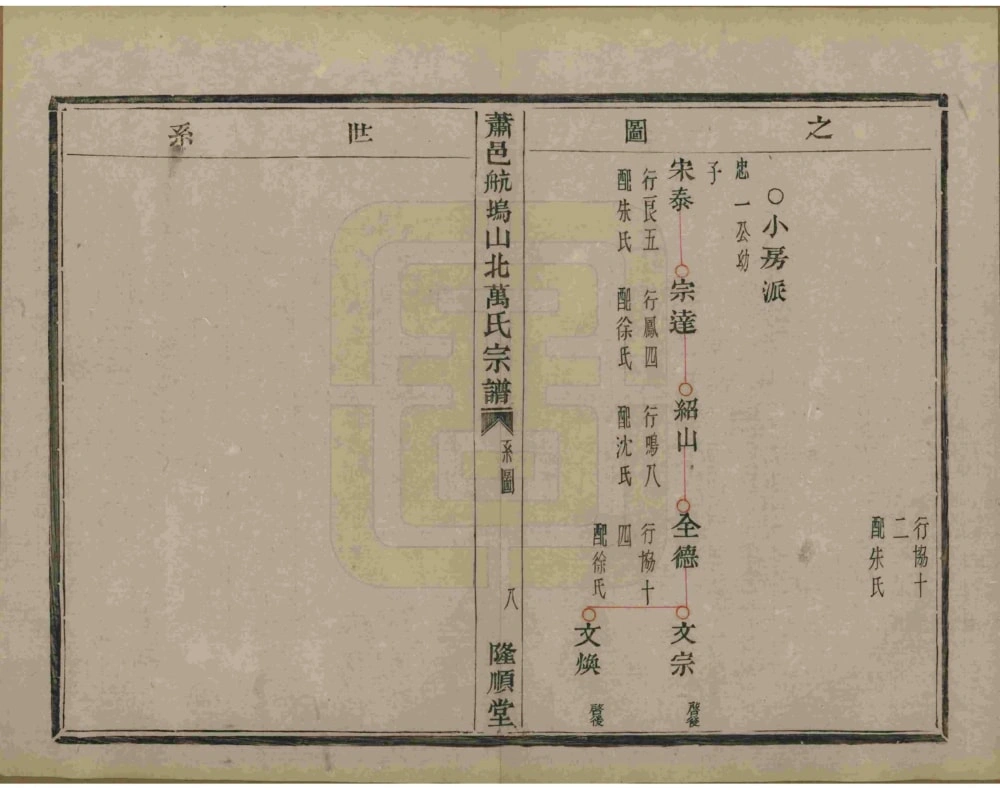 之圖
行協十
二
配朱氏
○小房派
忠一公幼
子
宋泰
行良五
配朱氏
宗達
行鳳四
配徐氏
紹山
行鳴八
配沈氏
全德
行協十
四
配徐氏
文宗
啓後
文煥
啓後
蕭邑航塢山北萬氏宗譜
系圖
八
隆順堂
世系